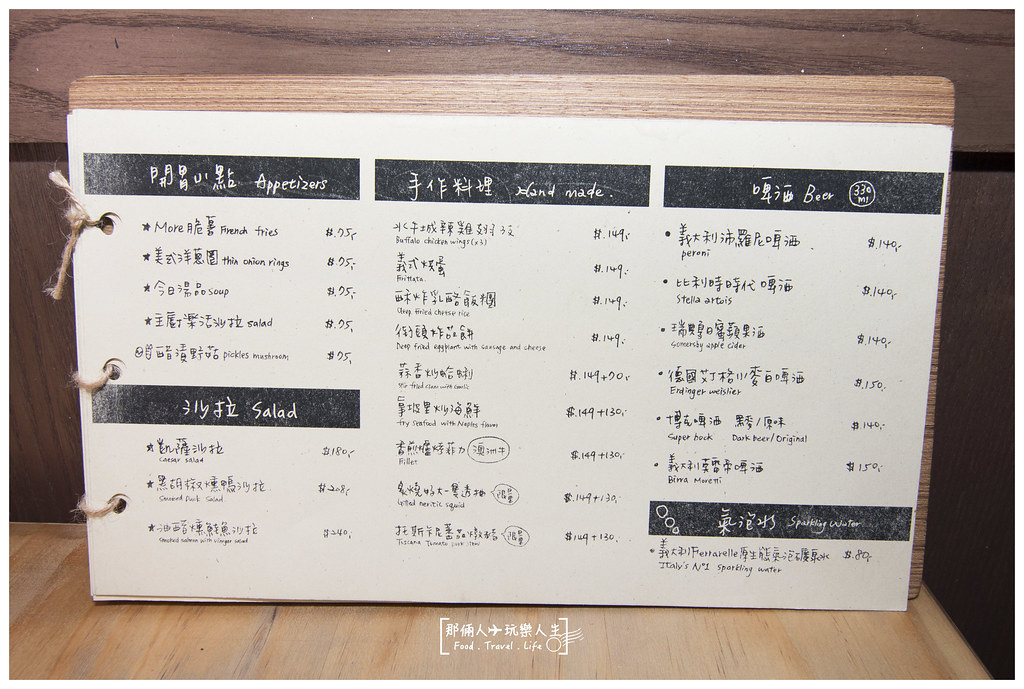 開胃小點 Appetizers
★More脆薯 French fries $.75,-
★美式洋蔥圈 thin onion rings $.75,-
★今日湯品 soup $.75,-
★主廚樂活沙拉 salad $.75,-
醋漬野菇 pickles mushroom $75,-
沙拉 Salad
★凱薩沙拉 $180,-
Caesar salad
★黑胡椒燻鴨沙拉 $208,-
Smoked Duck Salad
★油醋燻鮭魚沙拉 $240,-
Smoked salmon with vinegar salad
手作料理 Hand made.
水牛城辣雞翅 $.149,-
Buffalo chicken wings (x3)
義式烘蛋 $.149,-
Frittata
酥炸乳酪飯糰 $.149,-
Deep fried cheese rice
街頭炸茄餅 $.149,-
Deep fried eggplant with sausage and cheese
蒜香炒蛤蜊 $.149+70,-
Stir fried clam with Garlic
拿坡里炒海鮮 $.149+130,-
fry seafood with Naples flavor
香煎爐烤菲力 澳洲牛 $.149+130,-
Fillet
炙燒好大一隻透抽 限量 $.149+130,-
Grilled neritic squid
托斯卡尼蕃茄燉豬 限量 $149+130,-
Tuscana Tomato pork stew
啤酒 Beer 330 ml
• 義大利沛羅尼啤酒 $.140,-
peroni
• 比利時時代啤酒 $.140,-
Stella artois
• 瑞典夏日蜜蘋果酒 $.140,-
Somersby apple cider
• 德國艾丁格小麥白啤酒 $.150,-
Erdinger weisbier
• 博克啤酒 黑麥/原味 $.140,-
Super bock Dark beer/Original
• 義大利莫雷帝啤酒 $150,-
Birra Moretti
氣泡水 Sparkling Water
• 義大利Ferrarelle原生態氣泡礦泉水 $.80,-
Italy's Nº1 sparkling water
那倆人✈玩樂人生
Food . Travel . Life